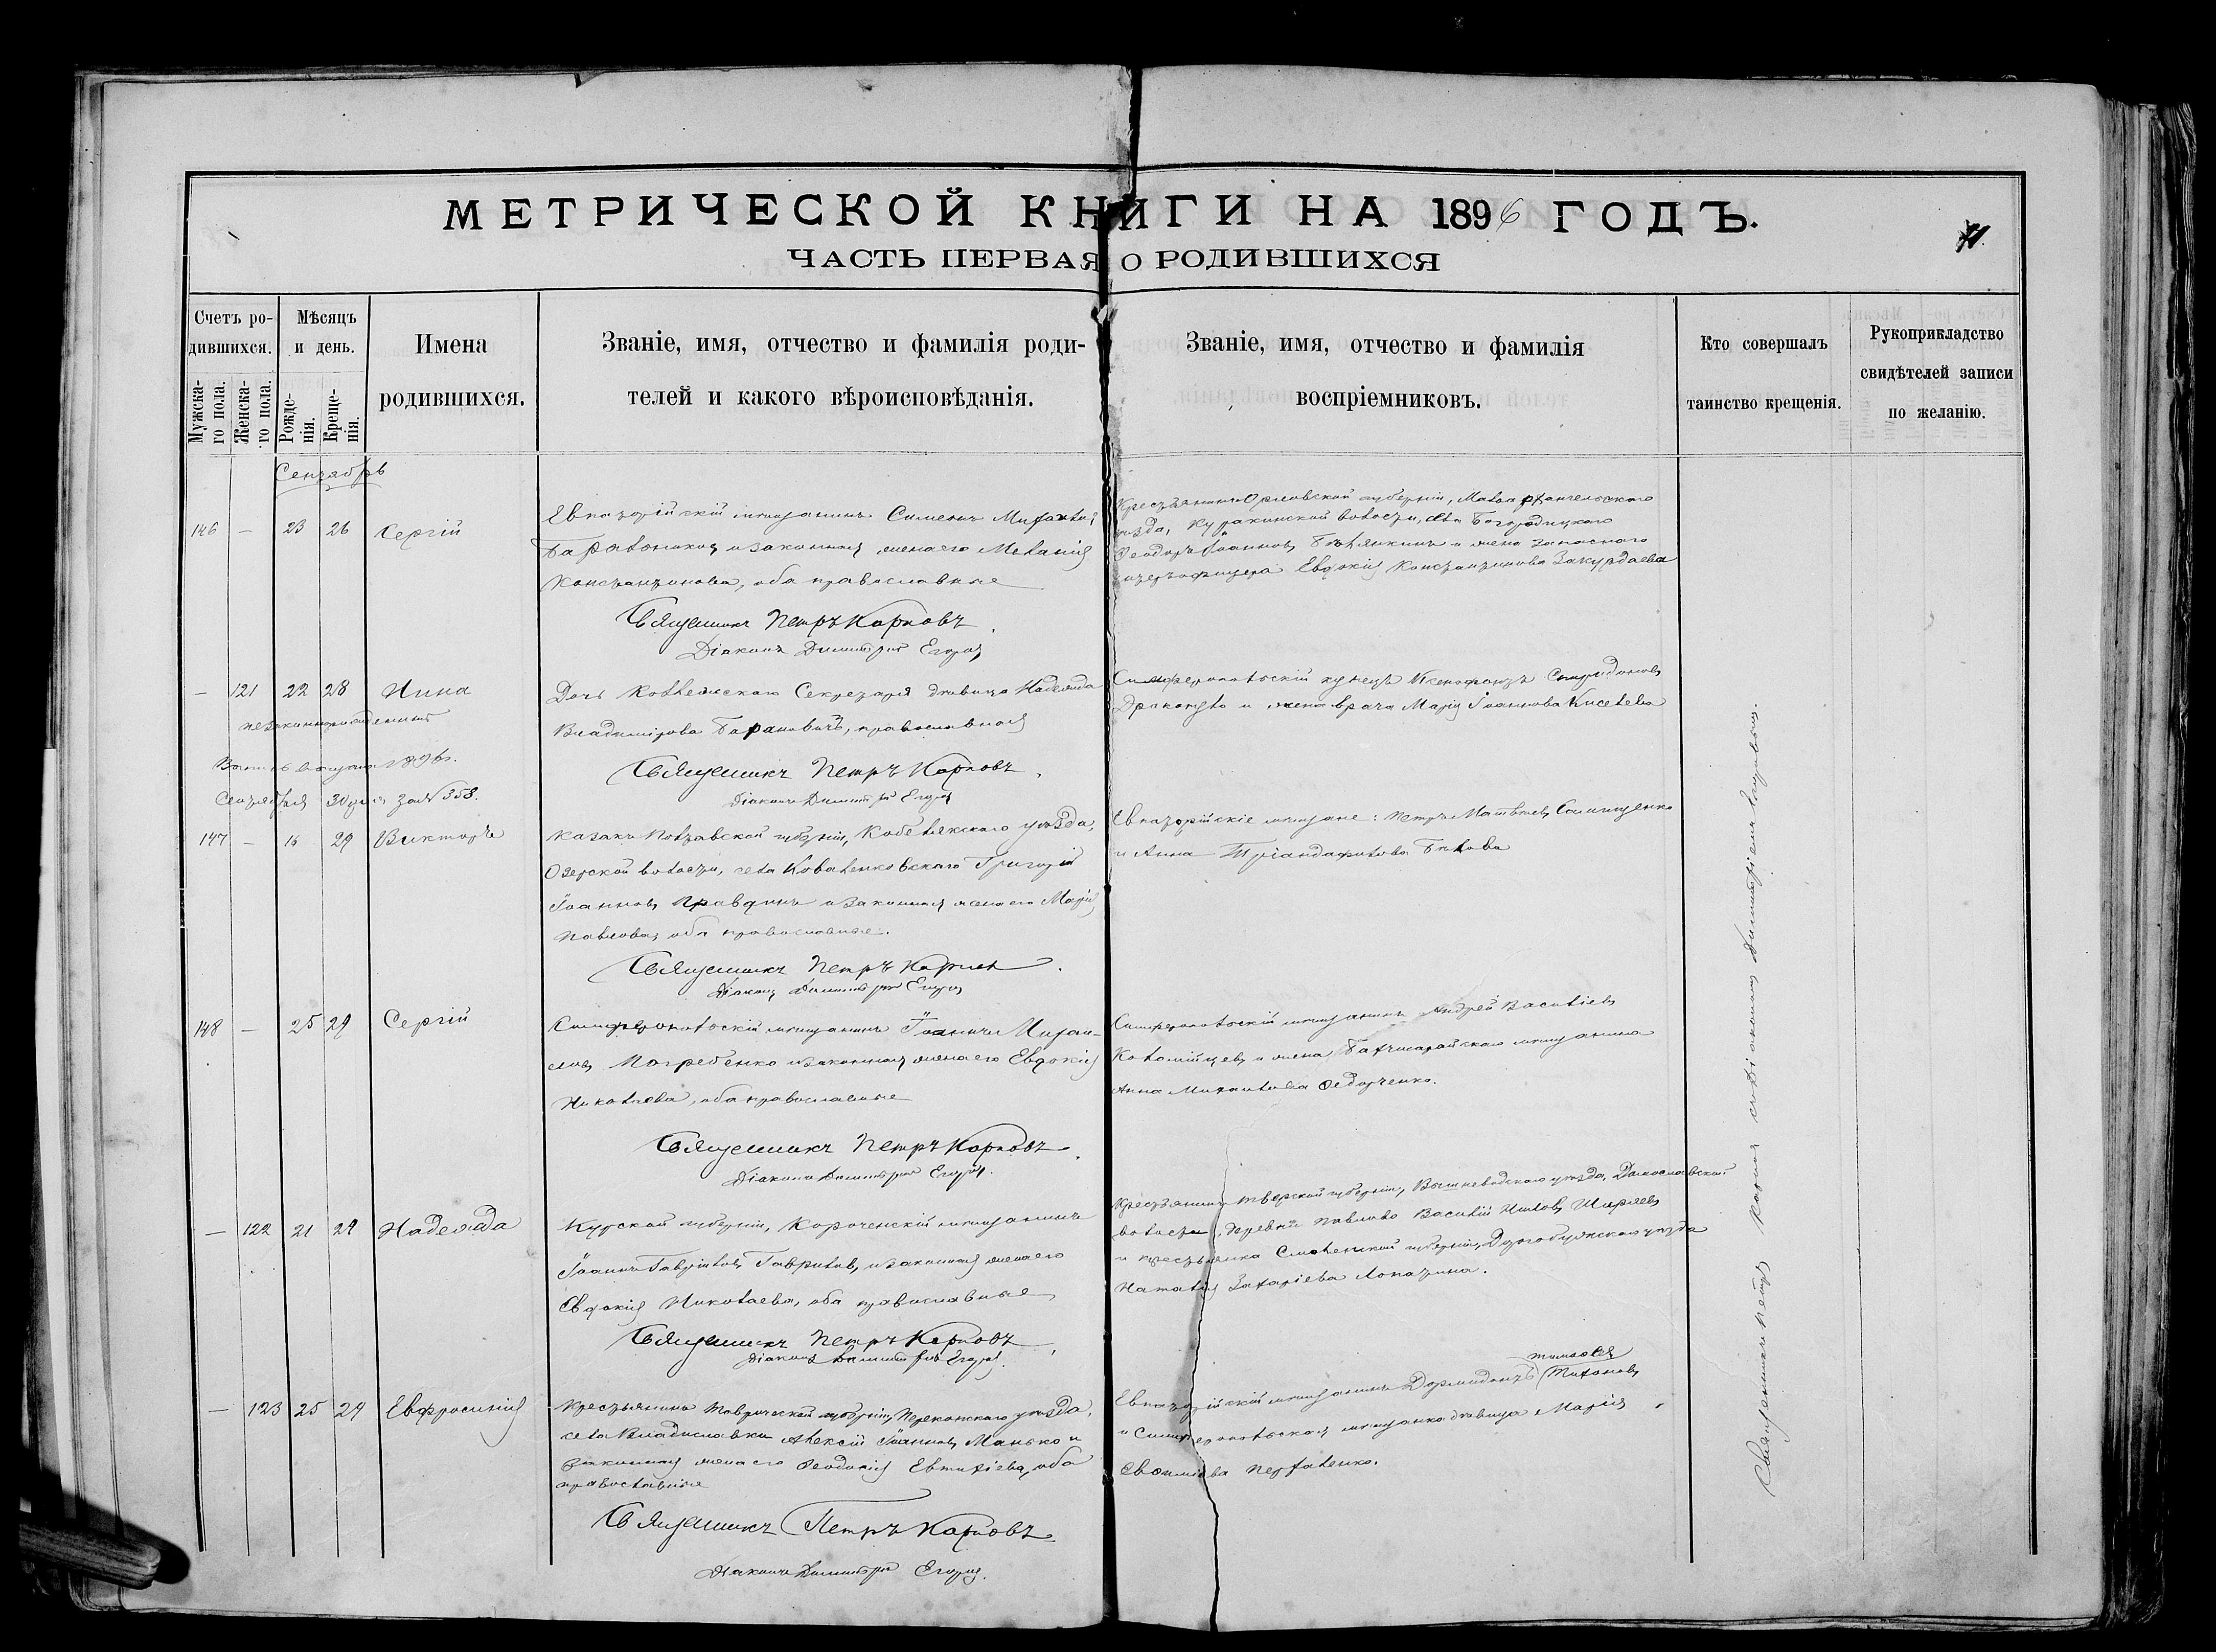 МЕТРИЧЕСКОЙ КНИГИ НА 1896 ГОДЪ.
ЧАСТЬ ПЕРВАЯ О РОДИВШИХСЯ
Счетъ ро-
дившихся.
Мужска-
го пола.
Женска-
го пола.
Мѣсяцъ
и день.
Рожде-
нія.
Креще-
нія.
Имена
родившихся.
Званіе, имя, отчество и фамилія роди-
телей и какого вѣроисповѣданія.
Званіе, имя, отчество и фамилія
воспріемниковъ.
Кто совершалъ
таинство крещенія.
Рукоприкладство
свидѣтелей записи
по желанію.
Сентябрь
146 — 23 26 Сергій
Евпаторійскій мѣщанинъ Симеонъ
и законная жена его Меланія
Константинова, оба православные
Священникъ Петръ Карповъ.
Діаконъ Димитрій Егоровъ
Крестьянинъ Орловской губерніи, Малоархангельскаго
уѣзда, Куракинской волости, села Богородицкаго
Ѳеодоръ Іоанновъ и жена запаснаго
унтеръ-офицера Евдокія Константинова Закурдаева
— 121 22 28 Нина
незаконнорожденная
Сентября 30 дня за № 358.
Дочь Коллежскаго Секретаря дѣвица Надежда
Владимірова Барановичъ, православная
Священникъ Петръ Карповъ.
Діаконъ Димитрій Егоровъ
Симферопольскій купецъ Ксенофонтъ Спиридоновъ
и жена врача Марія Іоаннова Киселева
147 — 16 29 Викторъ
Казакъ Полтавской губерніи, Кобелякскаго уѣзда,
Озерской волости, села Коваленковскаго Григорій
Іоанновъ Правдинъ и законная жена его Марія
Павлова, оба православные.
Священникъ Петръ Карповъ.
Діаконъ Димитрій Егоровъ
Евпаторійскіе мѣщане: Петръ Матвѣевъ
и Анна Тріандафилова Бѣлова
148 — 25 29 Сергій
Симферопольскій мѣщанинъ Іоаннъ Михаи-
ловъ Погребенко и законная жена его Евдокія
Николаева, оба православные
Священникъ Петръ Карповъ.
Діаконъ Димитрій Егоровъ.
Симферопольскій мѣщанинъ Андрей Василіевъ
Коломійцевъ и жена Бахчисарайскаго мѣщанина
Анна Михаилова Ѳедорченко.
— 122 21 29 Надежда
Курской губерніи, Короченскій мѣщанинъ
Іоаннъ Гавріиловъ Гавриловъ и законная жена его
Евдокія Николаева, оба православные
Священникъ Петръ Карповъ.
Діаконъ Димитрій Егоровъ.
Крестьянинъ Тверской губерніи, Вышневолоцкаго уѣзда,
волости, деревни Павлово Василій Ширяевъ
и крестьянка Смоленской губерніи, Дорогобужскаго уѣзда
Наталія Захаріева Лопатина.
— 123 25 29 Евфросинія
Крестьянинъ Таврической губерніи, Перекопскаго уѣзда,
села Владиславки Алексій Іоанновъ Манько и
законная жена его Ѳеодосія Евтихіева, оба
православные
Священникъ Петръ Карповъ
Діаконъ Димитрій Егоровъ.
Евпаторійскій мѣщанинъ Дормидонтъ Тихоновъ
и Симферопольская мѣщанка дѣвица Марія
Евѳиміева
Священникъ Петръ Карповъ съ діакономъ Димитріемъ Егоровымъ.